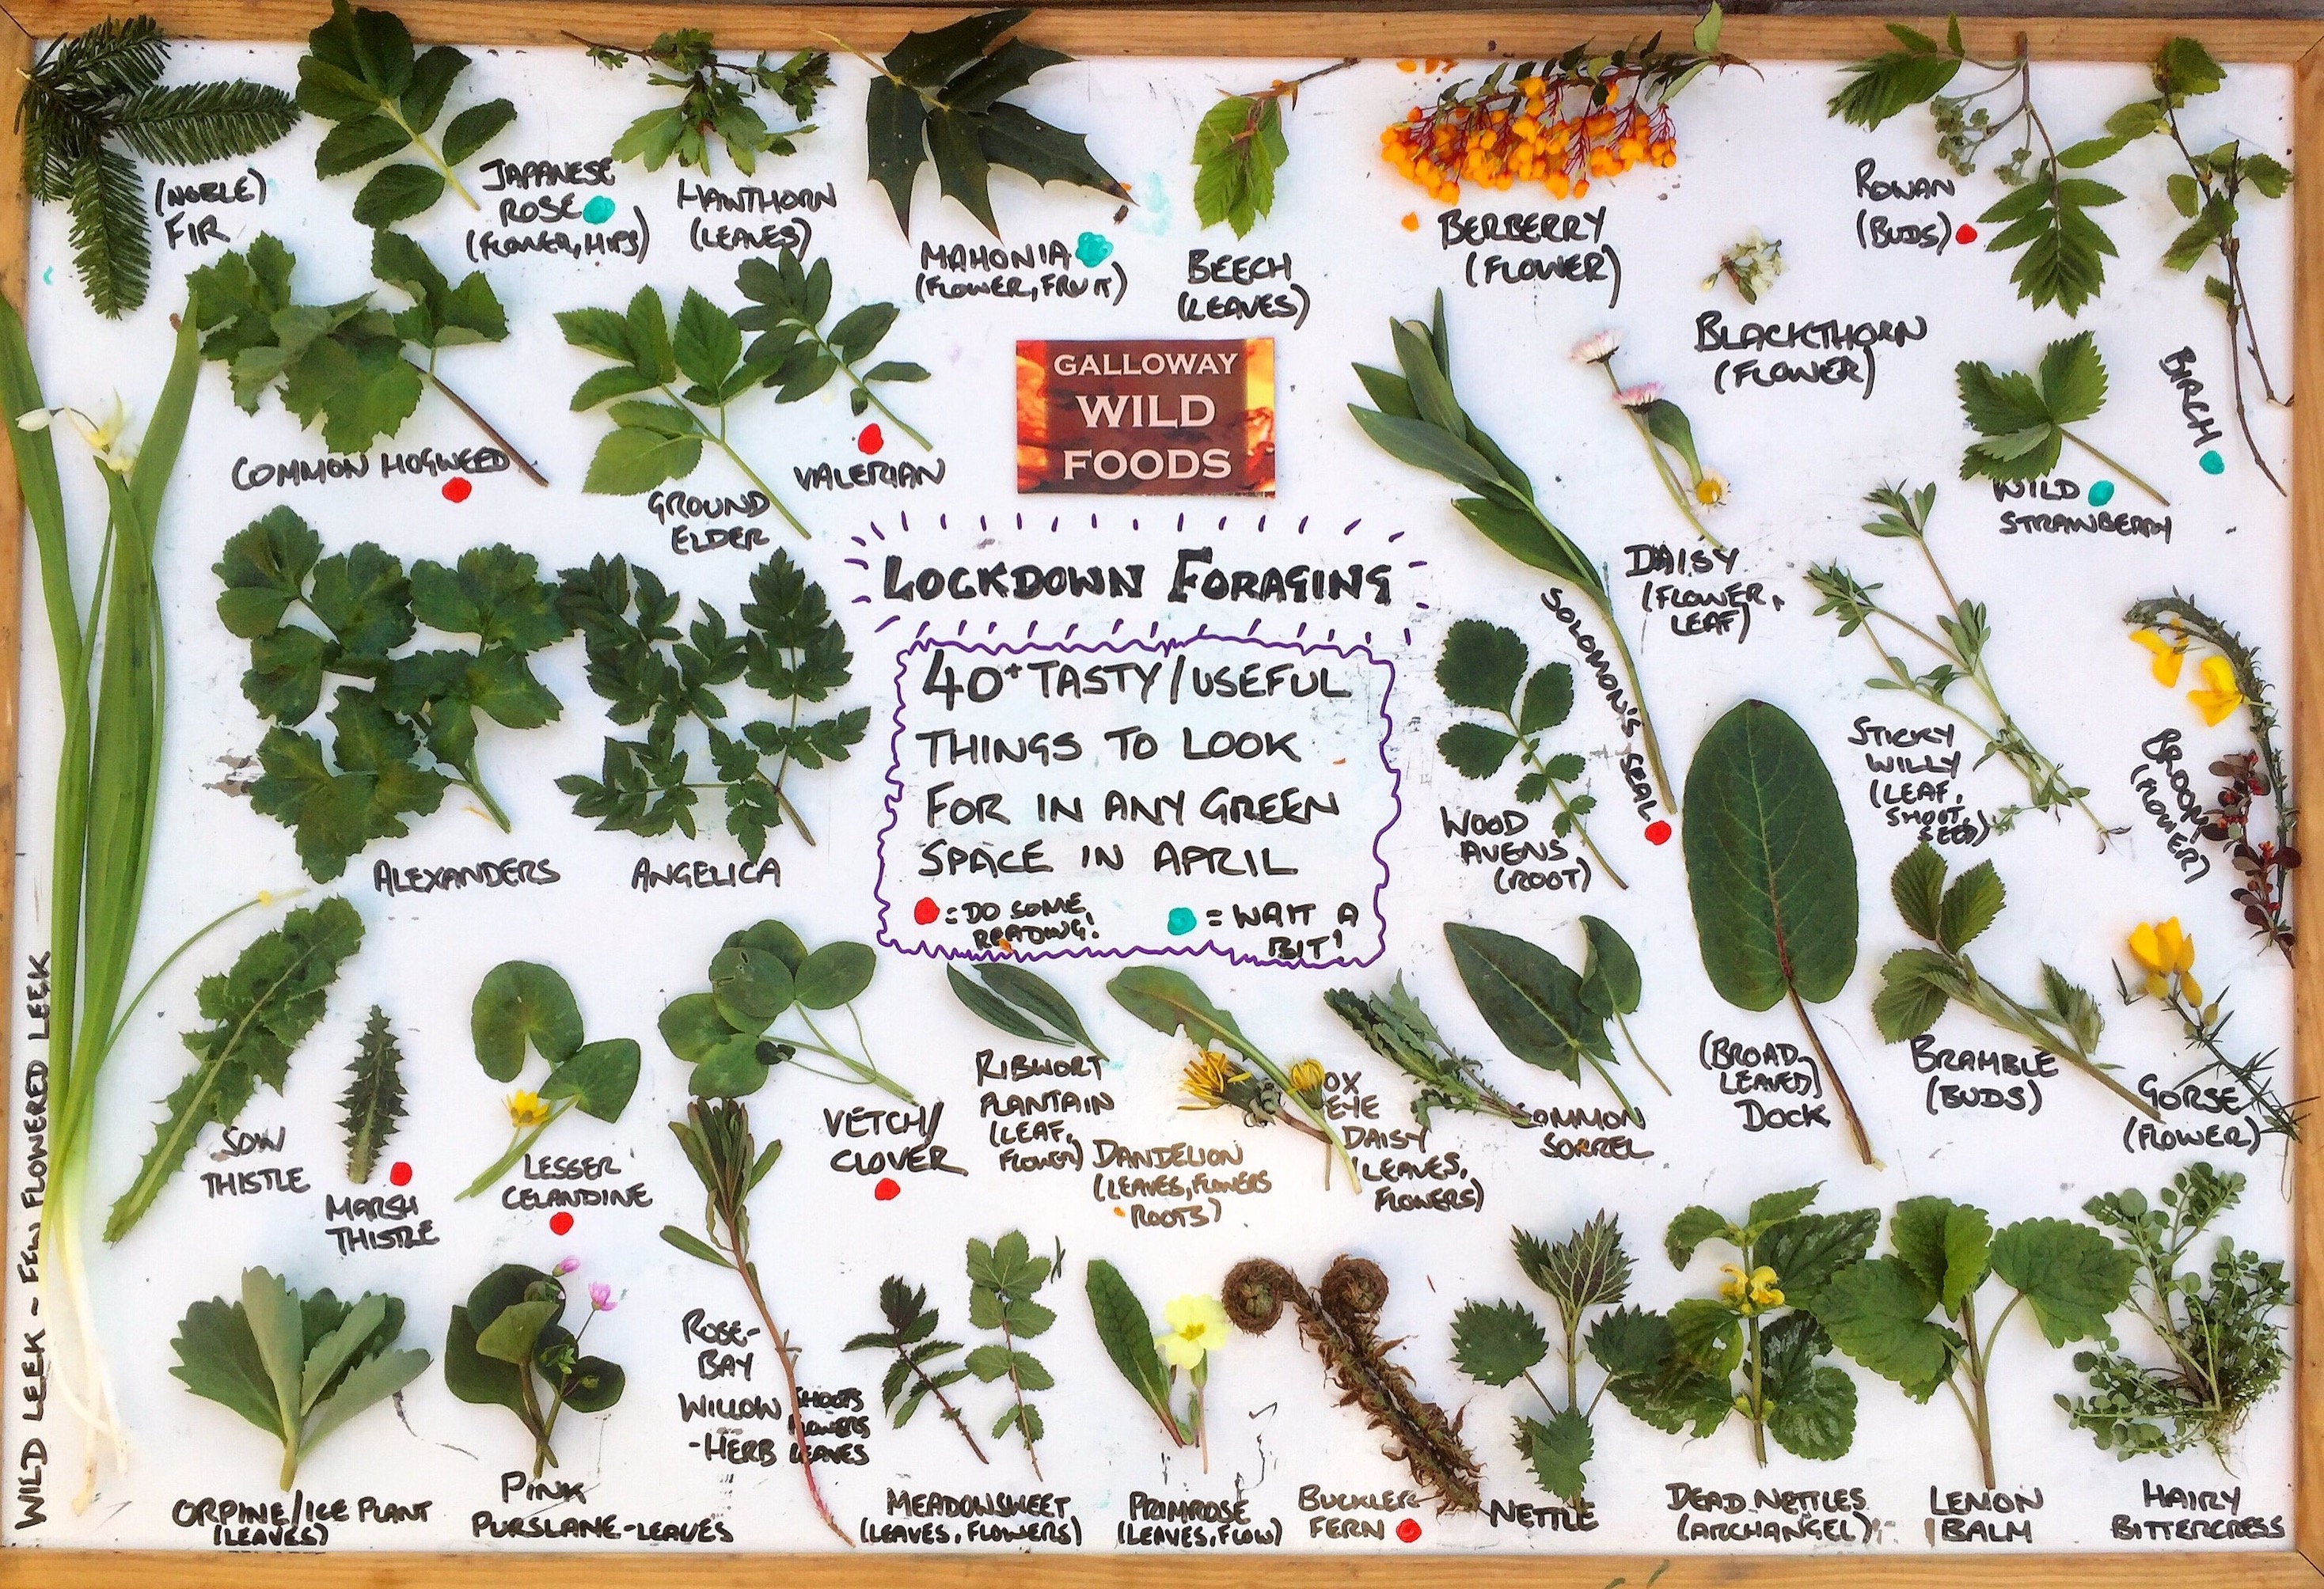 (NOBLE)
FIR
JAPANESE
ROSE
(FLOWER, HIPS)
HAWTHORN
(LEAVES)
MAHONIA
(FLOWER, FRUIT)
BEECH
(LEAVES)
BERBERRY
(FLOWER)
ROWAN
(BUDS)
BLACKTHORN
(FLOWER)
BIRCH
COMMON HOGWEED
GROUND
ELDER
VALERIAN
GALLOWAY
WILD
FOODS
DAISY
(FLOWER,
LEAF)
WILD
STRAWBERRY
LOCKDOWN FORAGING
40+ TASTY/USEFUL
THINGS TO LOOK
FOR IN ANY GREEN
SPACE IN APRIL
= DO SOME
READING!
= WAIT A
BIT!
ALEXANDERS
ANGELICA
SOLOMON'S SEAL
WOOD
AVENS
(ROOT)
STICKY
WILLY
(LEAF,
SHOOT,
SEED)
BROOM
(FLOWER)
WILD LEEK ~ FEW FLOWERED LEEK
SOW
THISTLE
MARSH
THISTLE
LESSER
CELANDINE
VETCH/
CLOVER
RIBWORT
PLANTAIN
(LEAF,
FLOWER)
DANDELION
(LEAVES, FLOWERS
ROOTS)
OX
EYE
DAISY
(LEAVES,
FLOWERS)
COMMON
SORREL
(BROAD
LEAVED)
DOCK
BRAMBLE
(BUDS)
GORSE
(FLOWER)
ORPINE/ICE PLANT
(LEAVES)
PINK
PURSLANE-LEAVES
ROSE-
BAY
WILLOW SHOOTS
FLOWERS
-HERB LEAVES
MEADOWSWEET
(LEAVES, FLOWERS)
PRIMROSE
(LEAVES, FLOW)
BUCKLER
FERN
NETTLE
DEAD NETTLES
(ARCHANGEL)
LEMON
BALM
HAIRY
BITTERCRESS